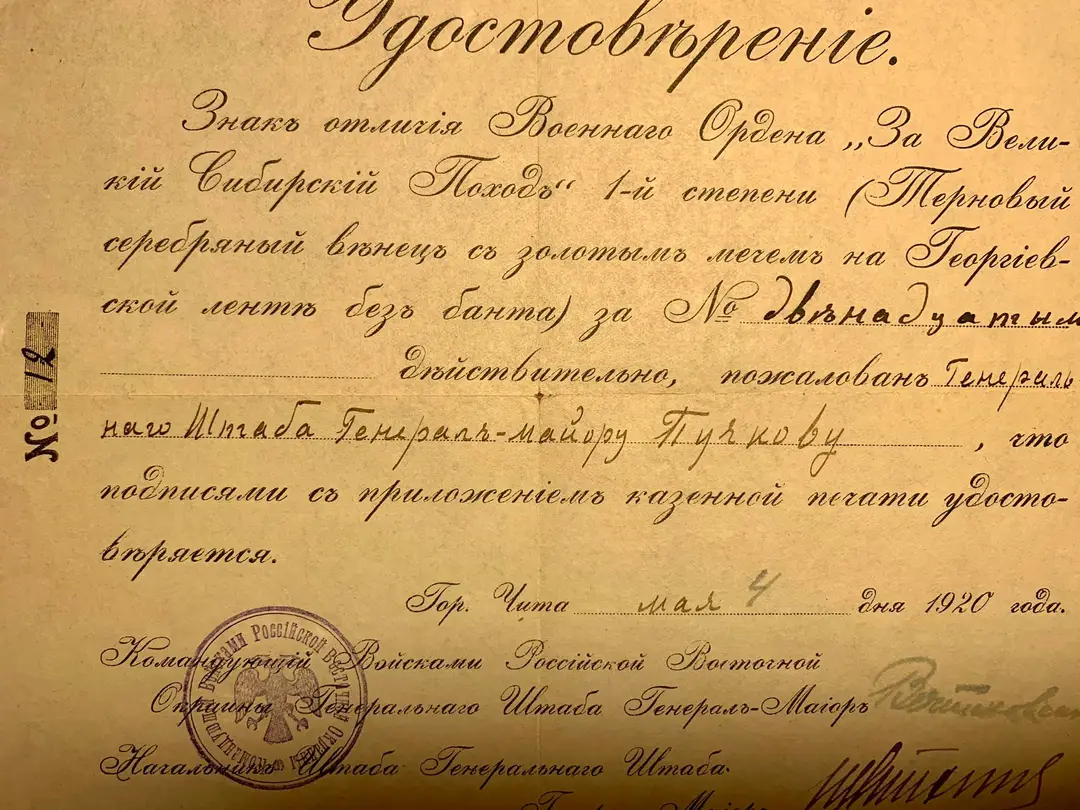 Удостовѣреніе.
Знакъ отличія Военнаго Ордена „За Вели-
кій Сибирскій Походъ“ 1-й степени (Терновый
серебряный вѣнецъ съ золотымъ мечемъ на Георгіев-
ской лентѣ безъ банта) за № двѣнадцатым
дѣйствительно, пожалованъ Генераль
наго Штаба Генералъ-майору Пучкову, что
подписями съ приложеніемъ казенной печати удосто-
вѣряется.
Гор. Чита мая 4 дня 1920 года.
Командующій Войсками Россійской Восточной
Окраины Генеральнаго Штаба Генералъ-Маіоръ
Начальникъ Штаба Генеральнаго Штаба
Генералъ-Маіоръ
№ 12